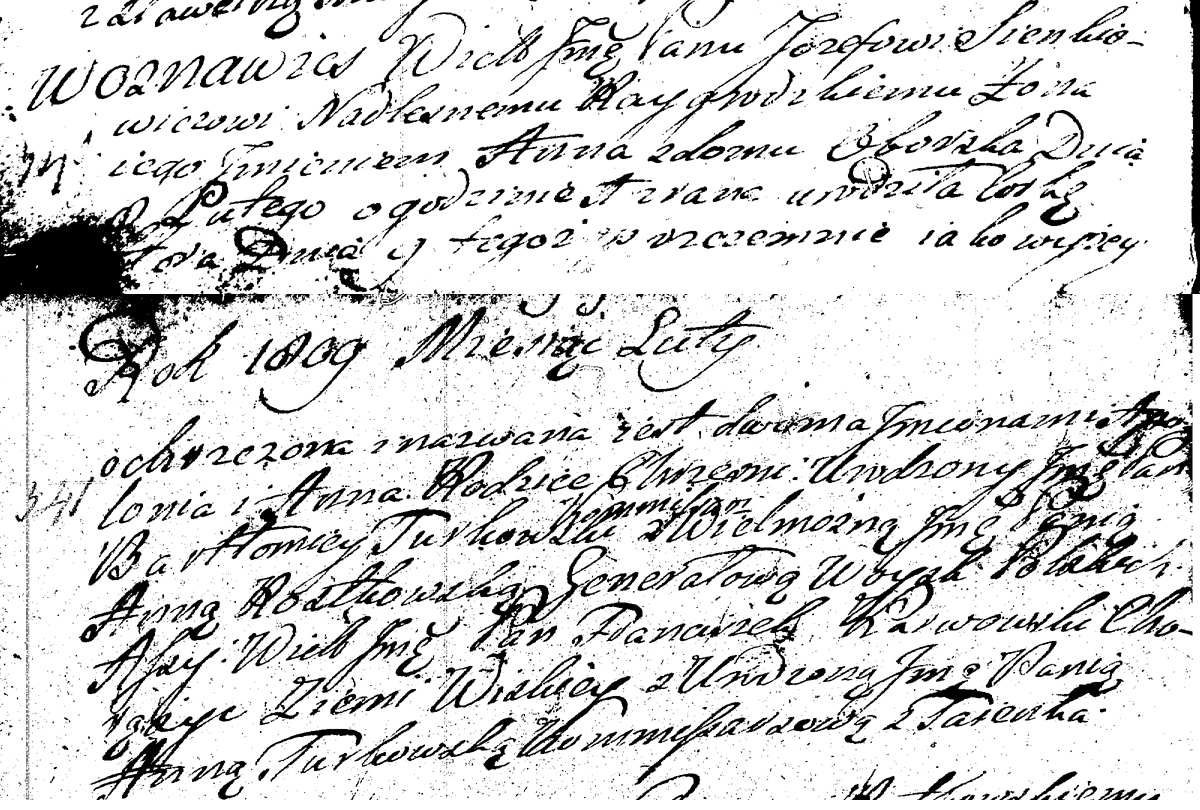 Woznawieś Wielb Jmę Panu Jozefowi Sienkie-
wiczowi Nadlesnemu Raygrodzkiemu Żona
iego Jmieniem Anna zdomu Oborska Dnia
8 Lutego o godzinie zrana urodziła Corkę
Dnia y tegoż w wrczemnie iako wyżey
Rok 1809 Miesiąc Luty
ochrzczona i nazwana iest dwoma Jmionami Apo
lonia i Anna Rodzice Chrzesni: Urodzony Jmę Pan
Kommissarz
Bartłomiey Turkowski z Wielmożną Jmę Panią
Anną Rostkowską Generałową Woysk Polskich
Assy: Wielb Jmę Pan Franciszek Karwowski Cho-
rąży Ziemi Wizkiey z Urodzoną Jmę Panią
Anną Turkowską Kommissarzową z Taienka